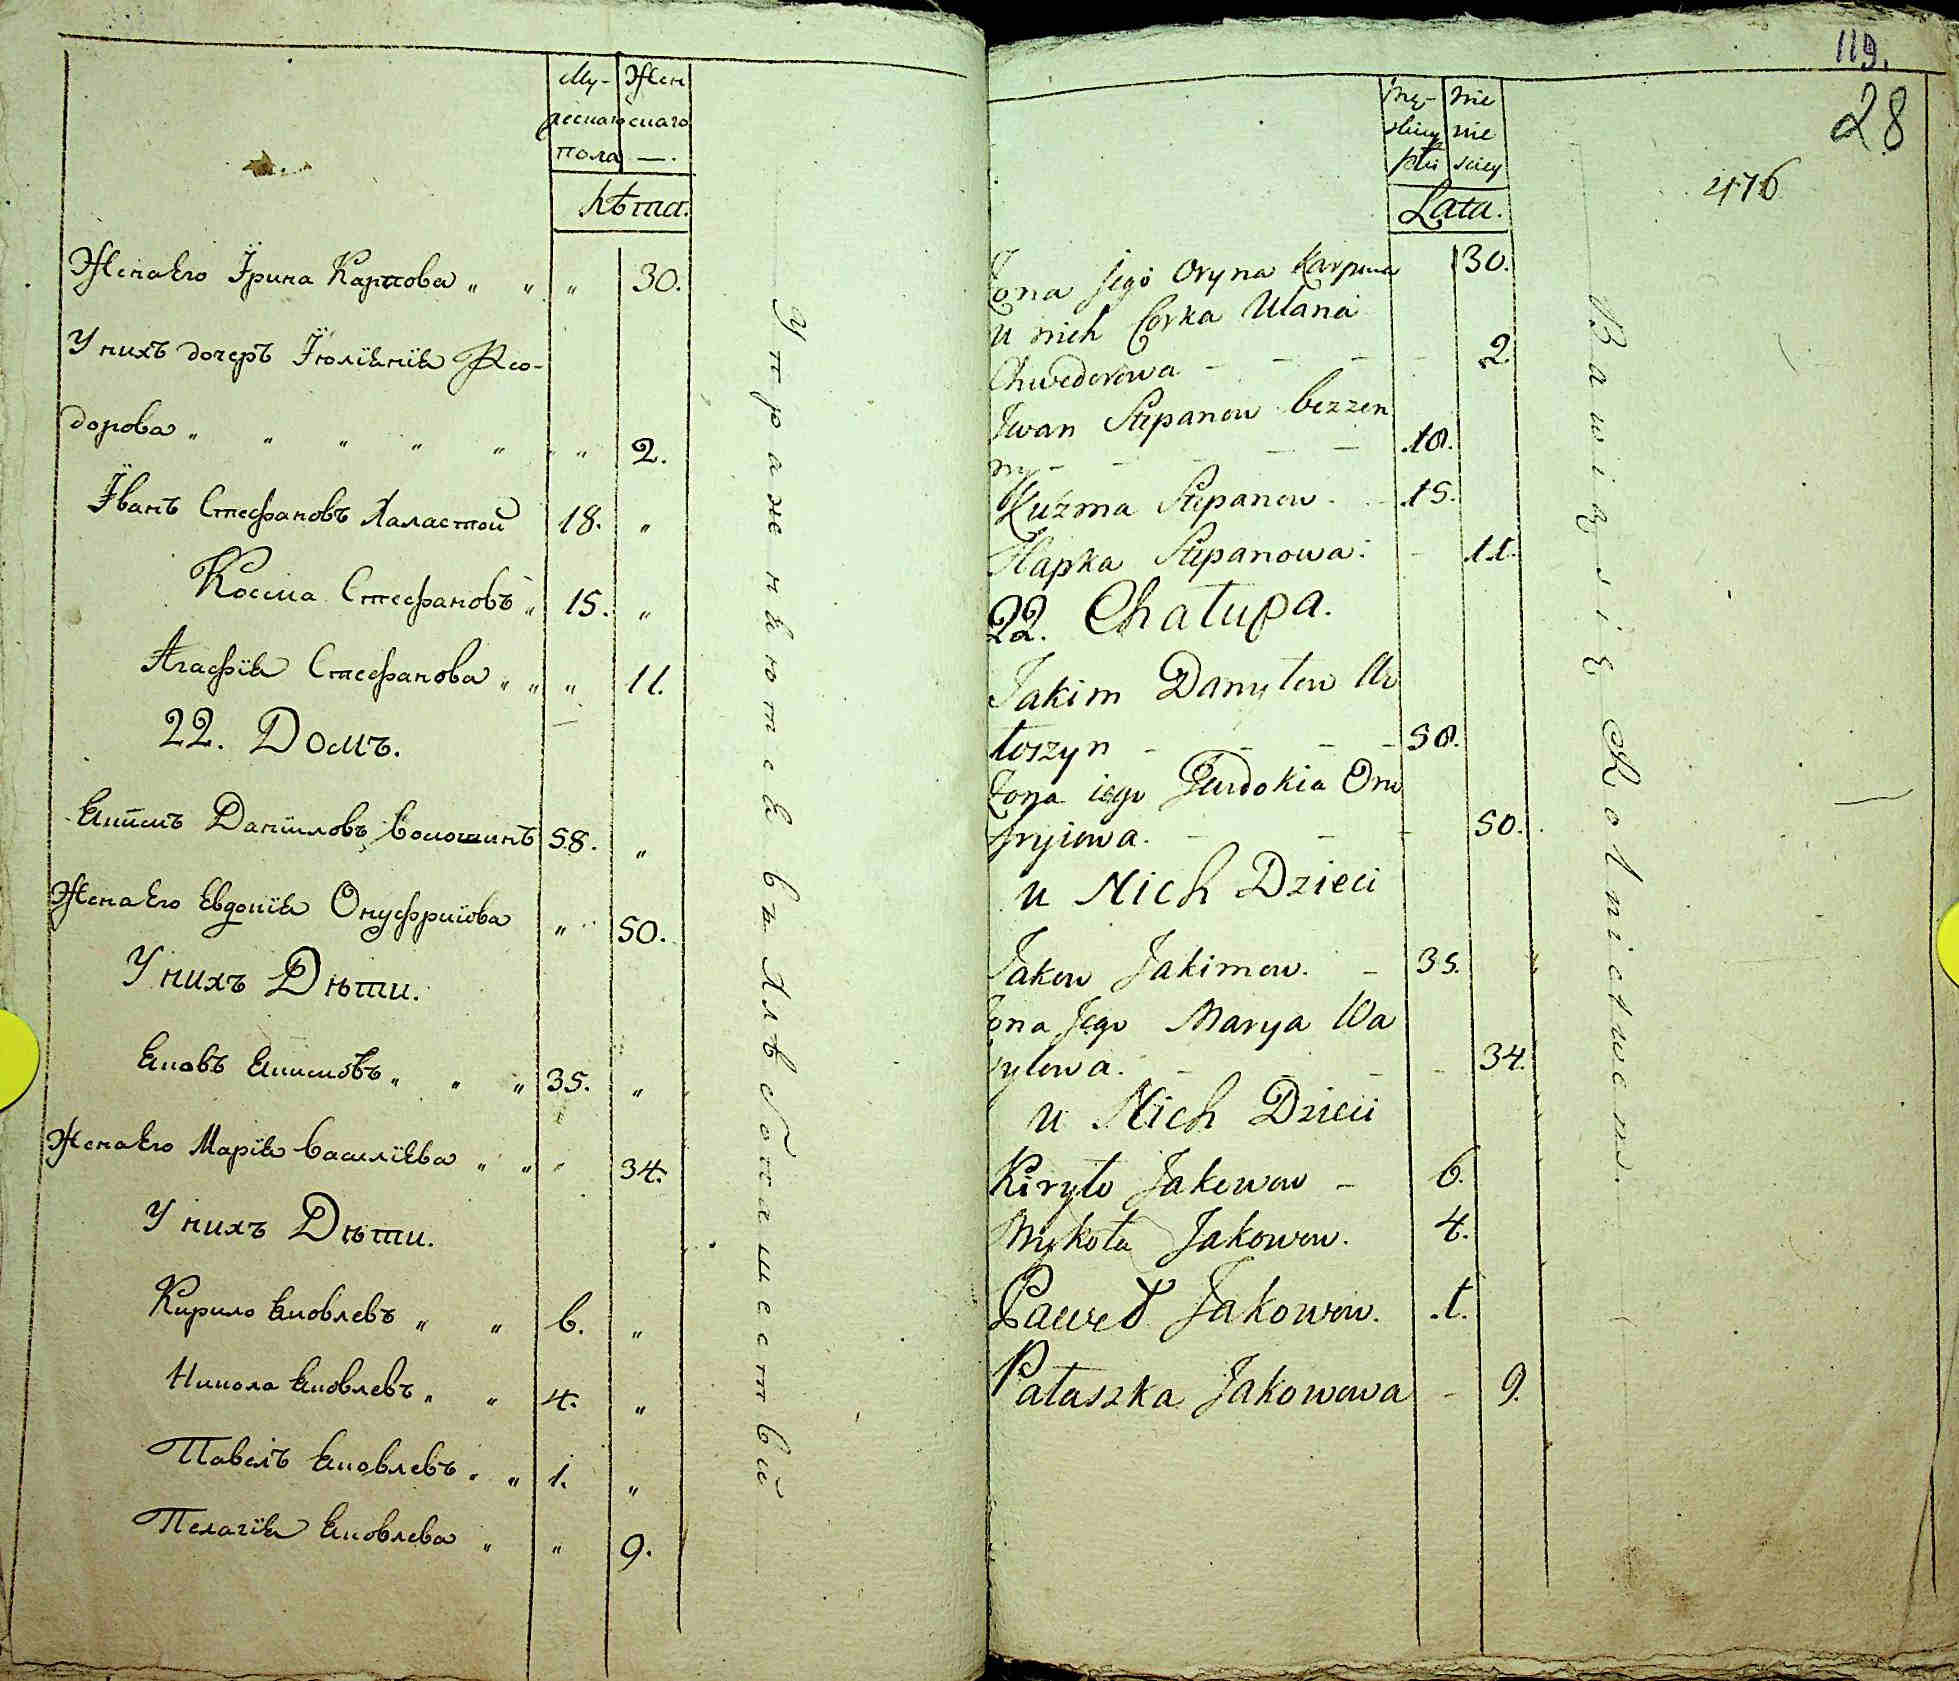 Му-
жескаго
пола
Жен
скаго
— .
Лѣта.
Жена Его Ірина Карпова " " " 30.
У нихъ дочеръ Іюліянія Ѳео-
дорова " " " " " " " 2.
Іванъ Стефановъ Халастой 18. "
Косма Стефановъ " 15. "
Агафія Стефанова " " " 11.
22. Домъ.
Якимъ Даніиловъ Волошинъ 58. "
Жена Его Евдокія Онуфріова " 50.
У нихъ Дѣти.
Яковъ Якимовъ " " " 35. "
Жена Его Марія Василіева " " " 34.
У нихъ Дѣти.
Кирило Яковлевъ " " 6. "
Никола Яковлевъ " " 4. "
Павелъ Яковлевъ " " 1. "
Пелагія Яковлева " " 9.
Упражняются въ Хлѣбопашествѣ
119.
28
476
Męz-
kiey
płci
nie
wie
sciey
Lata.
Żona jego Oryna Karpowa 30.
u nich Corka Ulana
Chwedorowa - - - - 2.
Jwan Stepanow bezzen
ny - - - - - 18.
Kuzma Stepanow. - 15.
Hapka Stepanowa. - 11.
22. Chałupa.
Jakim Danyłow Wo
łoszyn - - - - 58.
Żona iego Jewdokia Onu
fryiowa. - - - 50.
u Nich Dzieci
Jakow Jakimow. - 35.
Żona Jego Marya Wa
sylowa. - - - - 34.
u Nich Dzieci
Kiryło Jakowow - 6.
Mykoła Jakowow. 4.
Paweł Jakowow. 1.
Pałaszka Jakowowa - 9.
Bawią się Rolnictwem.